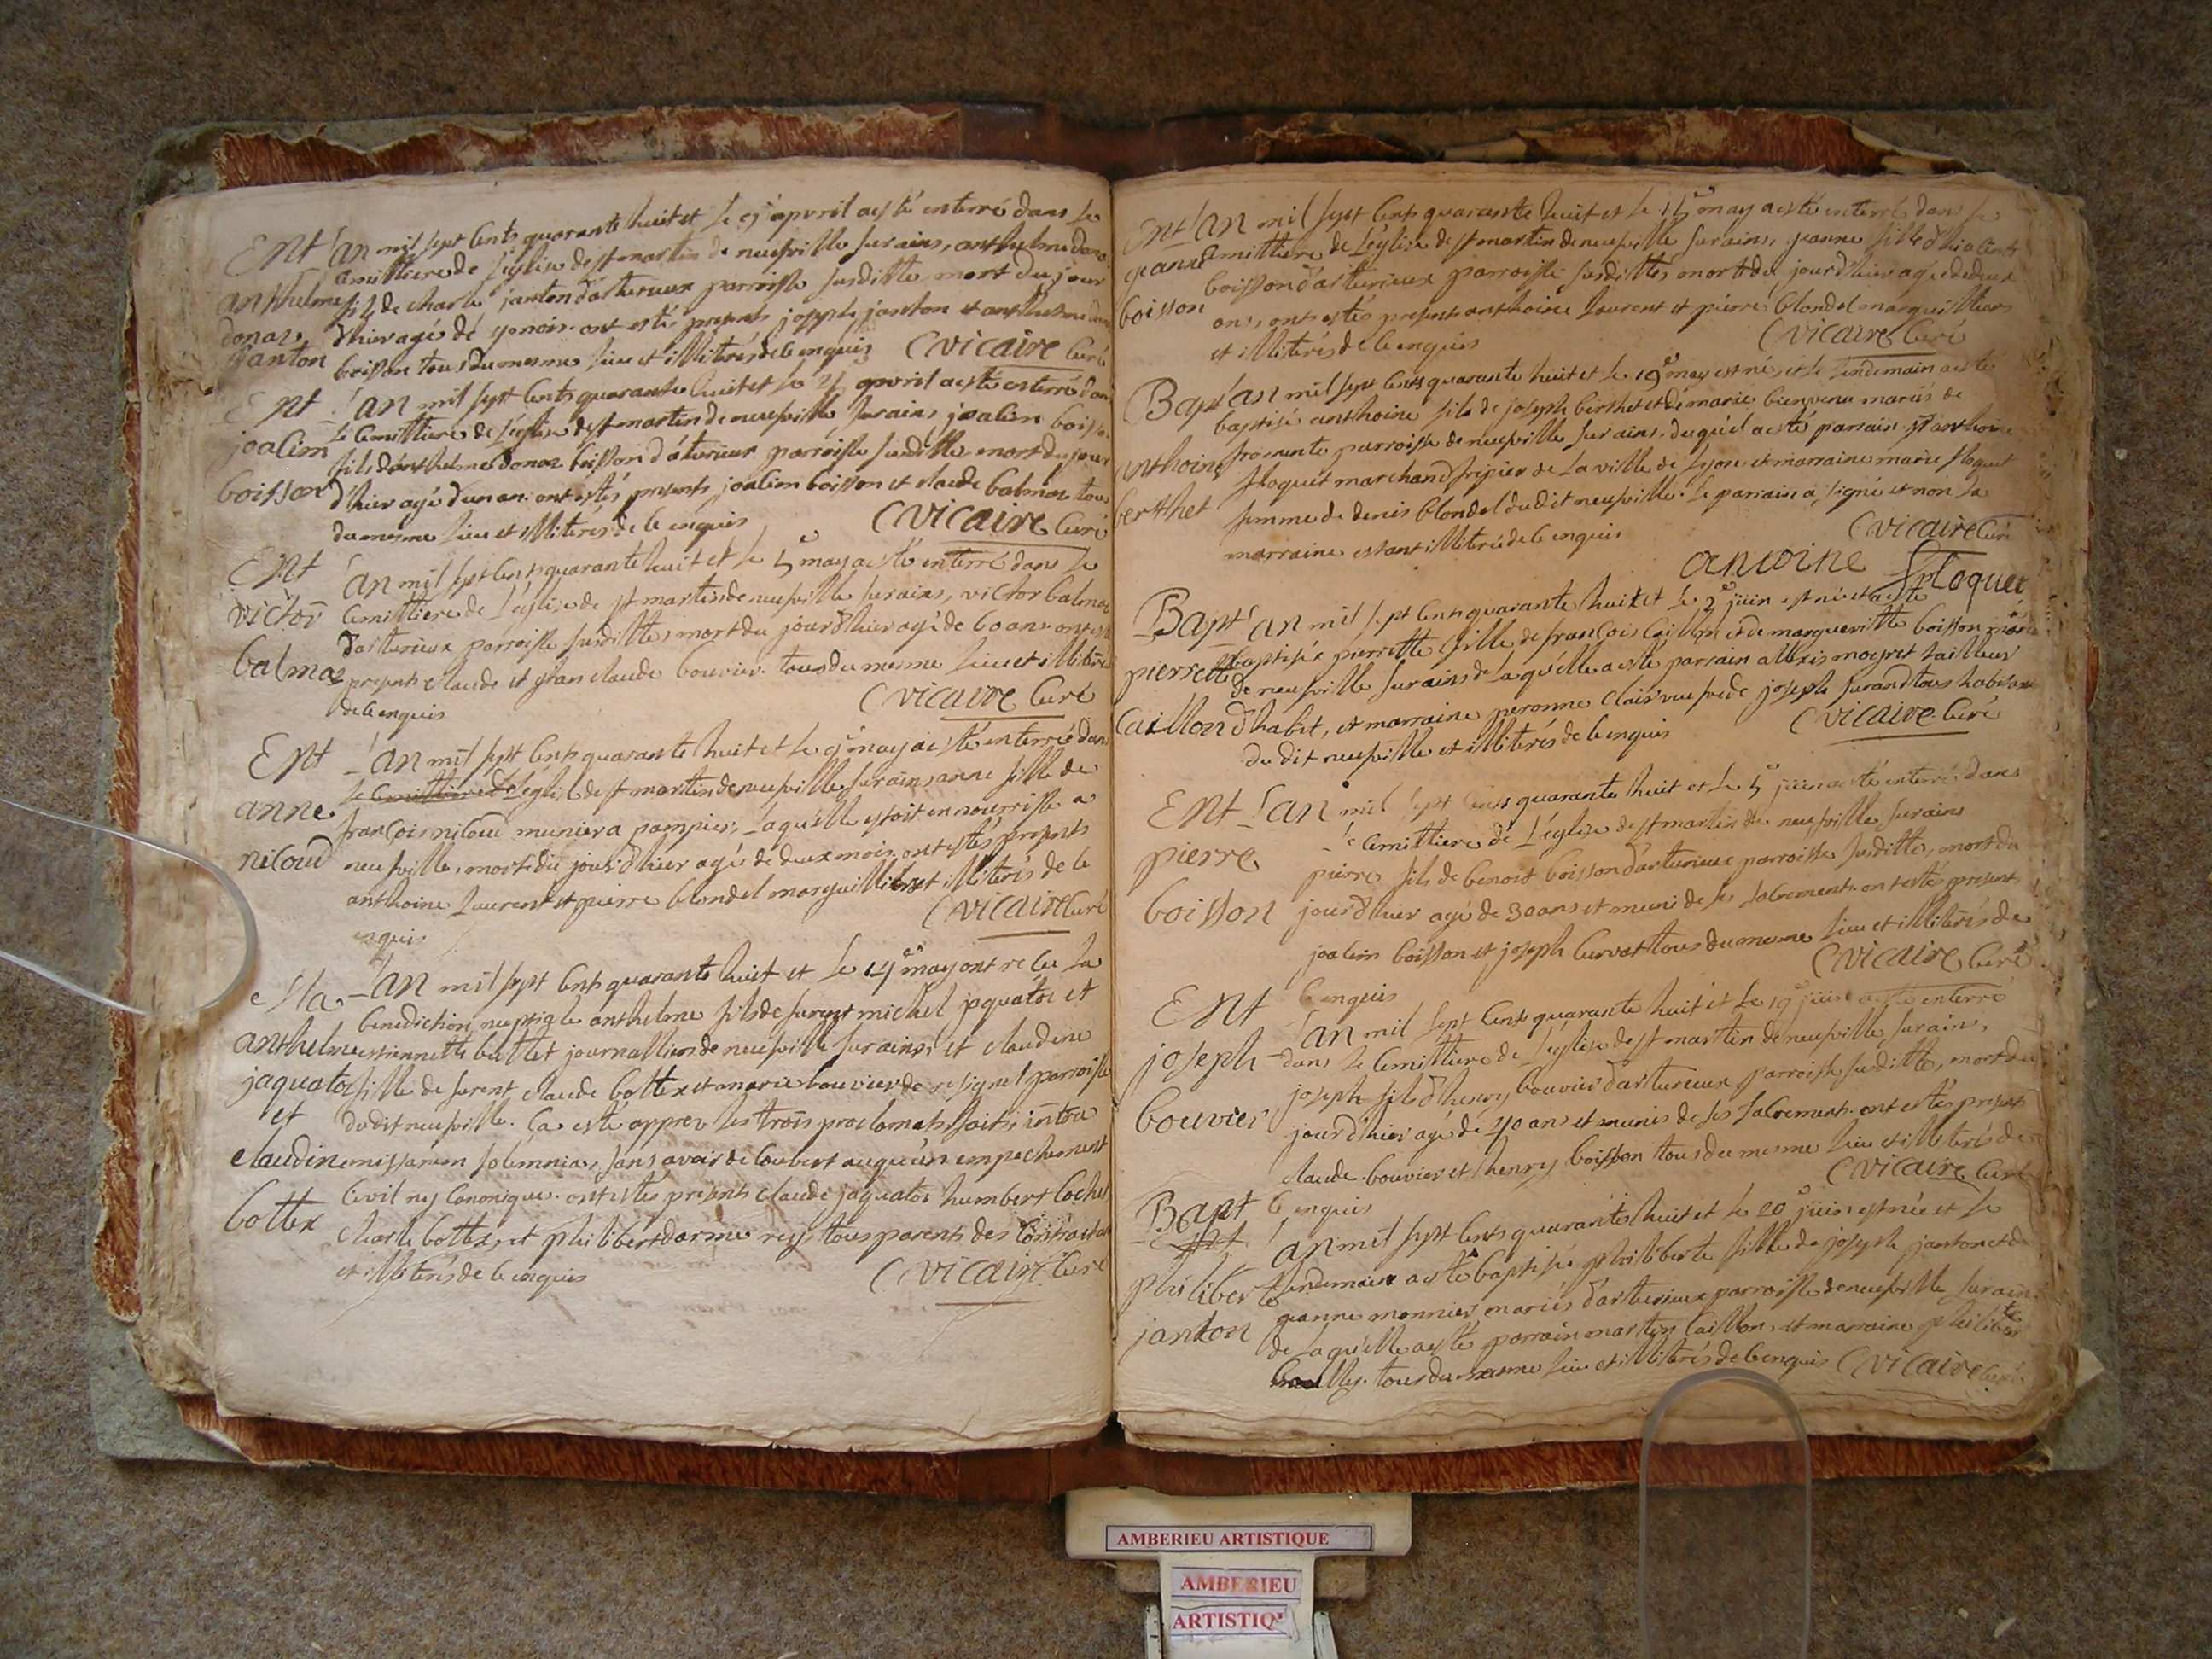 Ent
anthelme
donaz
janton
L'an mil sept cents quarante huit et le apvril a esté enterré dans le
cemittiere de l'église de st martin de neufville sur ains, anthelme donaz
fils de charle janton d'arturieux parroisse susditte mort du jour
d'hier agé de mois. ont estés presents joseph janton et anthelme
boisson tous du mesme lieu et illiterés de ce enquis C vicaire Curé
Ent
joalim
boisson
L'an mil sept cents quarante huit et le apvril a esté enterré dans
le cemittiere de l'église de st martin de neufville sur ains joalim boisson
fils d'anthelme donaz boisson d'aturieux parroisse susditte mort du jour
d'hier agé d'un an. ont estés presents joalim boisson et claude balmaz tous
du mesme lieu et illiterés de ce enquis C vicaire Curé
Ent
victor
balmaz
L'an mil sept cents quarante huit et le 5e may a esté enterré dans le
cemittiere de l'église de st martin de neufville sur ains, victor balmaz
d'arturieux parroisse susditte, mort du jour d'hier agé de 60 ans. ont estés
presents claude et jean claude bouvier. tous du mesme lieu et illiterés
de ce enquis C vicaire Curé
Ent
anne
niloud
L'an mil sept cents quarante huit et le 9e may a esté enterrée dans
le cemittiere de l'église de st martin de neufville sur ains anne fille de
françois niloud munier a pampier, laquelle estoit en nourrisse a
neufville, morte du jour d'hier agée de deux mois. ont estés presents
anthoine laurent et pierre blondel marguilliers et illiterés de ce
enquis C vicaire Curé
Ma
anthelme
jaquatoz
et
claudine
bottex
L'an mil sept cents quarante huit et le 14e may ont recu la
benediction nuptiale anthelme fils de furent michel jaquatoz et
estiennette bullet journalliers de neufville sur ains et claudine
fille de furent claude bottex et marie bouvier de resignel parroisse
du dit neufville. Ca esté apprez les trois proclamats faits intra
missarum solemnia, sans avoir decoubert auqu'un empechement
civil ny canonique. ont estés presents claude jaquatoz humbert cochet
charle bottex, et philibert darme rey, tous parents des contractants
et illiterés de ce enquis C vicaire Curé
Ent
jeanne
boisson
L'an mil sept cents quarante huit et le 15e may a esté enterré dans le
cemittiere de l'église de st martin de neufville sur ains, jeanne fille d'hiacinte
boisson d'arturieux parroisse susdittes morte du jour d'hier agée de deux
ans, ont estés present anthoine laurent et pierre blondel marguilliers
et illiterés de ce enquis C vicaire Curé
Bapt
anthoine
berthet
L'an mil sept cents quarante huit et le 19e may est né et le lendemain a esté
baptisé anthoine fils de joseph berthet et de marie bienvenu mariés de
fromente parroisse de neufville sur ains. duquel a esté parrain sr anthoine
floquet marchand fripier de la ville de lyon et marraine marie floquet
femme de denis blondel dudit neufville. le parrain a signé et non la
marraine estant illiterée de ce enquis C vicaire Curé
antoine floquet
Bapt
pierrette
Caillon
L'an mil sept cents quarante huit et le 2e juin est née et a esté
baptisée pierrette fille de françois Caillon et de margueritte boisson mariés
de neufville sur ains de laquelle a esté parrain allexis moyret tailleur
d'habit, et marraine peronne clair veufve de joseph jurand tous habitans
du dit neufville et illiterés de ce enquis C vicaire Curé
Ent
pierre
boisson
L'an mil sept cents quarante huit et le 5e juin a esté enterré dans
le cemittiere de l'église de st martin de neufville sur ains
pierre fils de benoit boisson d'arturieux parroisse susditte, mort du
jour d'hier agé de 30 ans et muni de ses sacrements. ont estés presents
joalim boisson et joseph curvat tous du mesme lieu et illiterés de
ce enquis C vicaire Curé
Ent
joseph
bouvier
L'an mil sept cents quarante huit et le 19e juin a esté enterré
dans le cemittiere de l'église de st martin de neufville sur ains,
joseph fils d'henry bouvier d'artureux parroisse susditte, mort du
jour d'hier agé de 40 ans et munis de ses sacrements. ont estés presents
claude bouvier et henry boisson tous du mesme lieu et illiterés de
ce enquis C vicaire Curé
Bapt
philiberte
janton
L'an mil sept cents quarante huit et le 20e juin est née et le
lendemain a esté baptisée philiberte fille de joseph janton et de
jeanne monnier mariés d'arturieux parroisse de neufville sur ains
de laquelle a esté parrain martin caillon, et marraine philiberte
tous du mesme lieu et illiterés de ce enquis C vicaire Curé
AMBERIEU ARTISTIQUE
AMBERIEU
ARTISTIQ